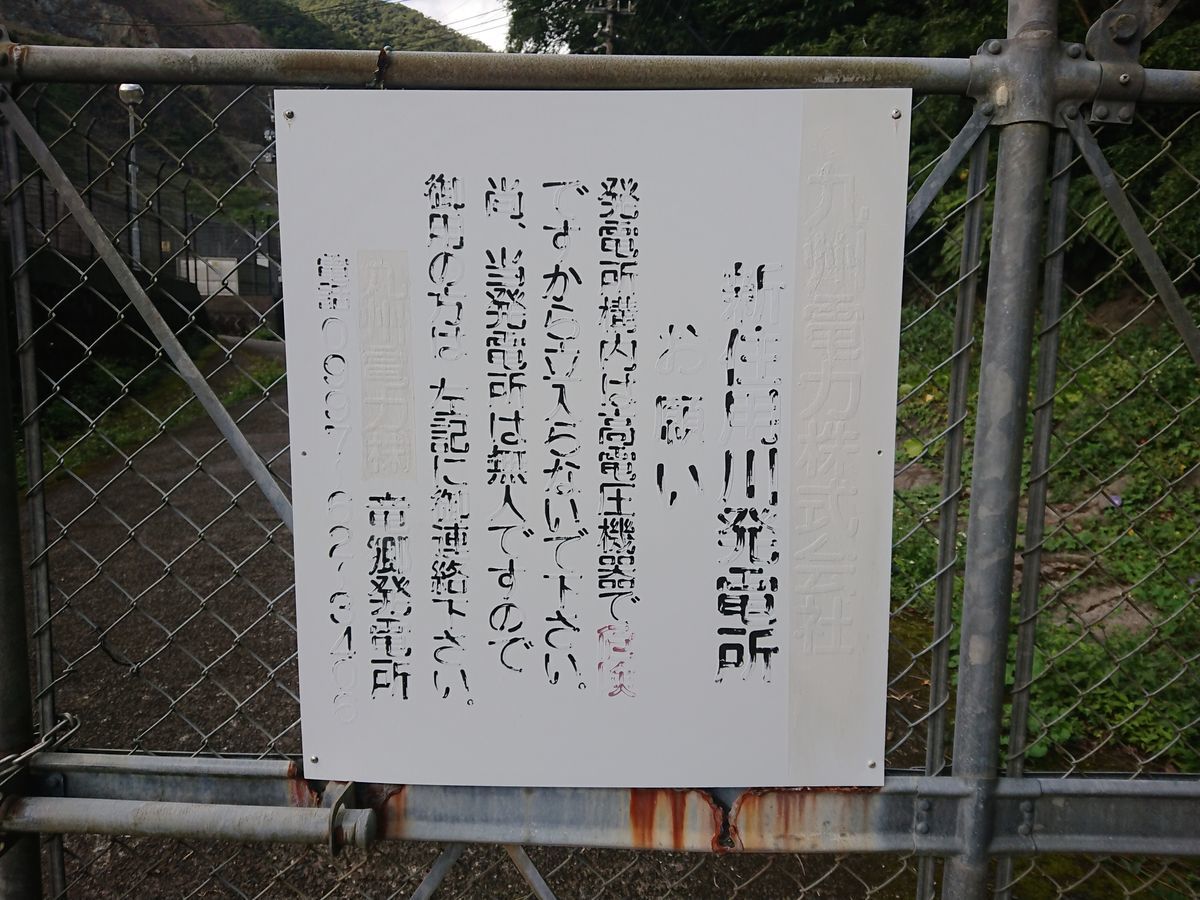 九州電力株式会社
新住用川発電所
お願い
発電所機内は高電圧機器で危険
ですから立入らないで下さい。
尚、当発電所は無人ですので
御用の方は左記に御連絡下さい。
九州電力㈱
竜郷発電所
電話0997-62-3406